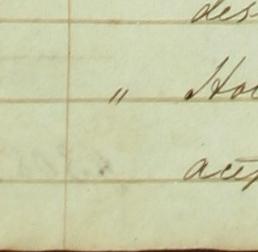 des
" Hou
acep